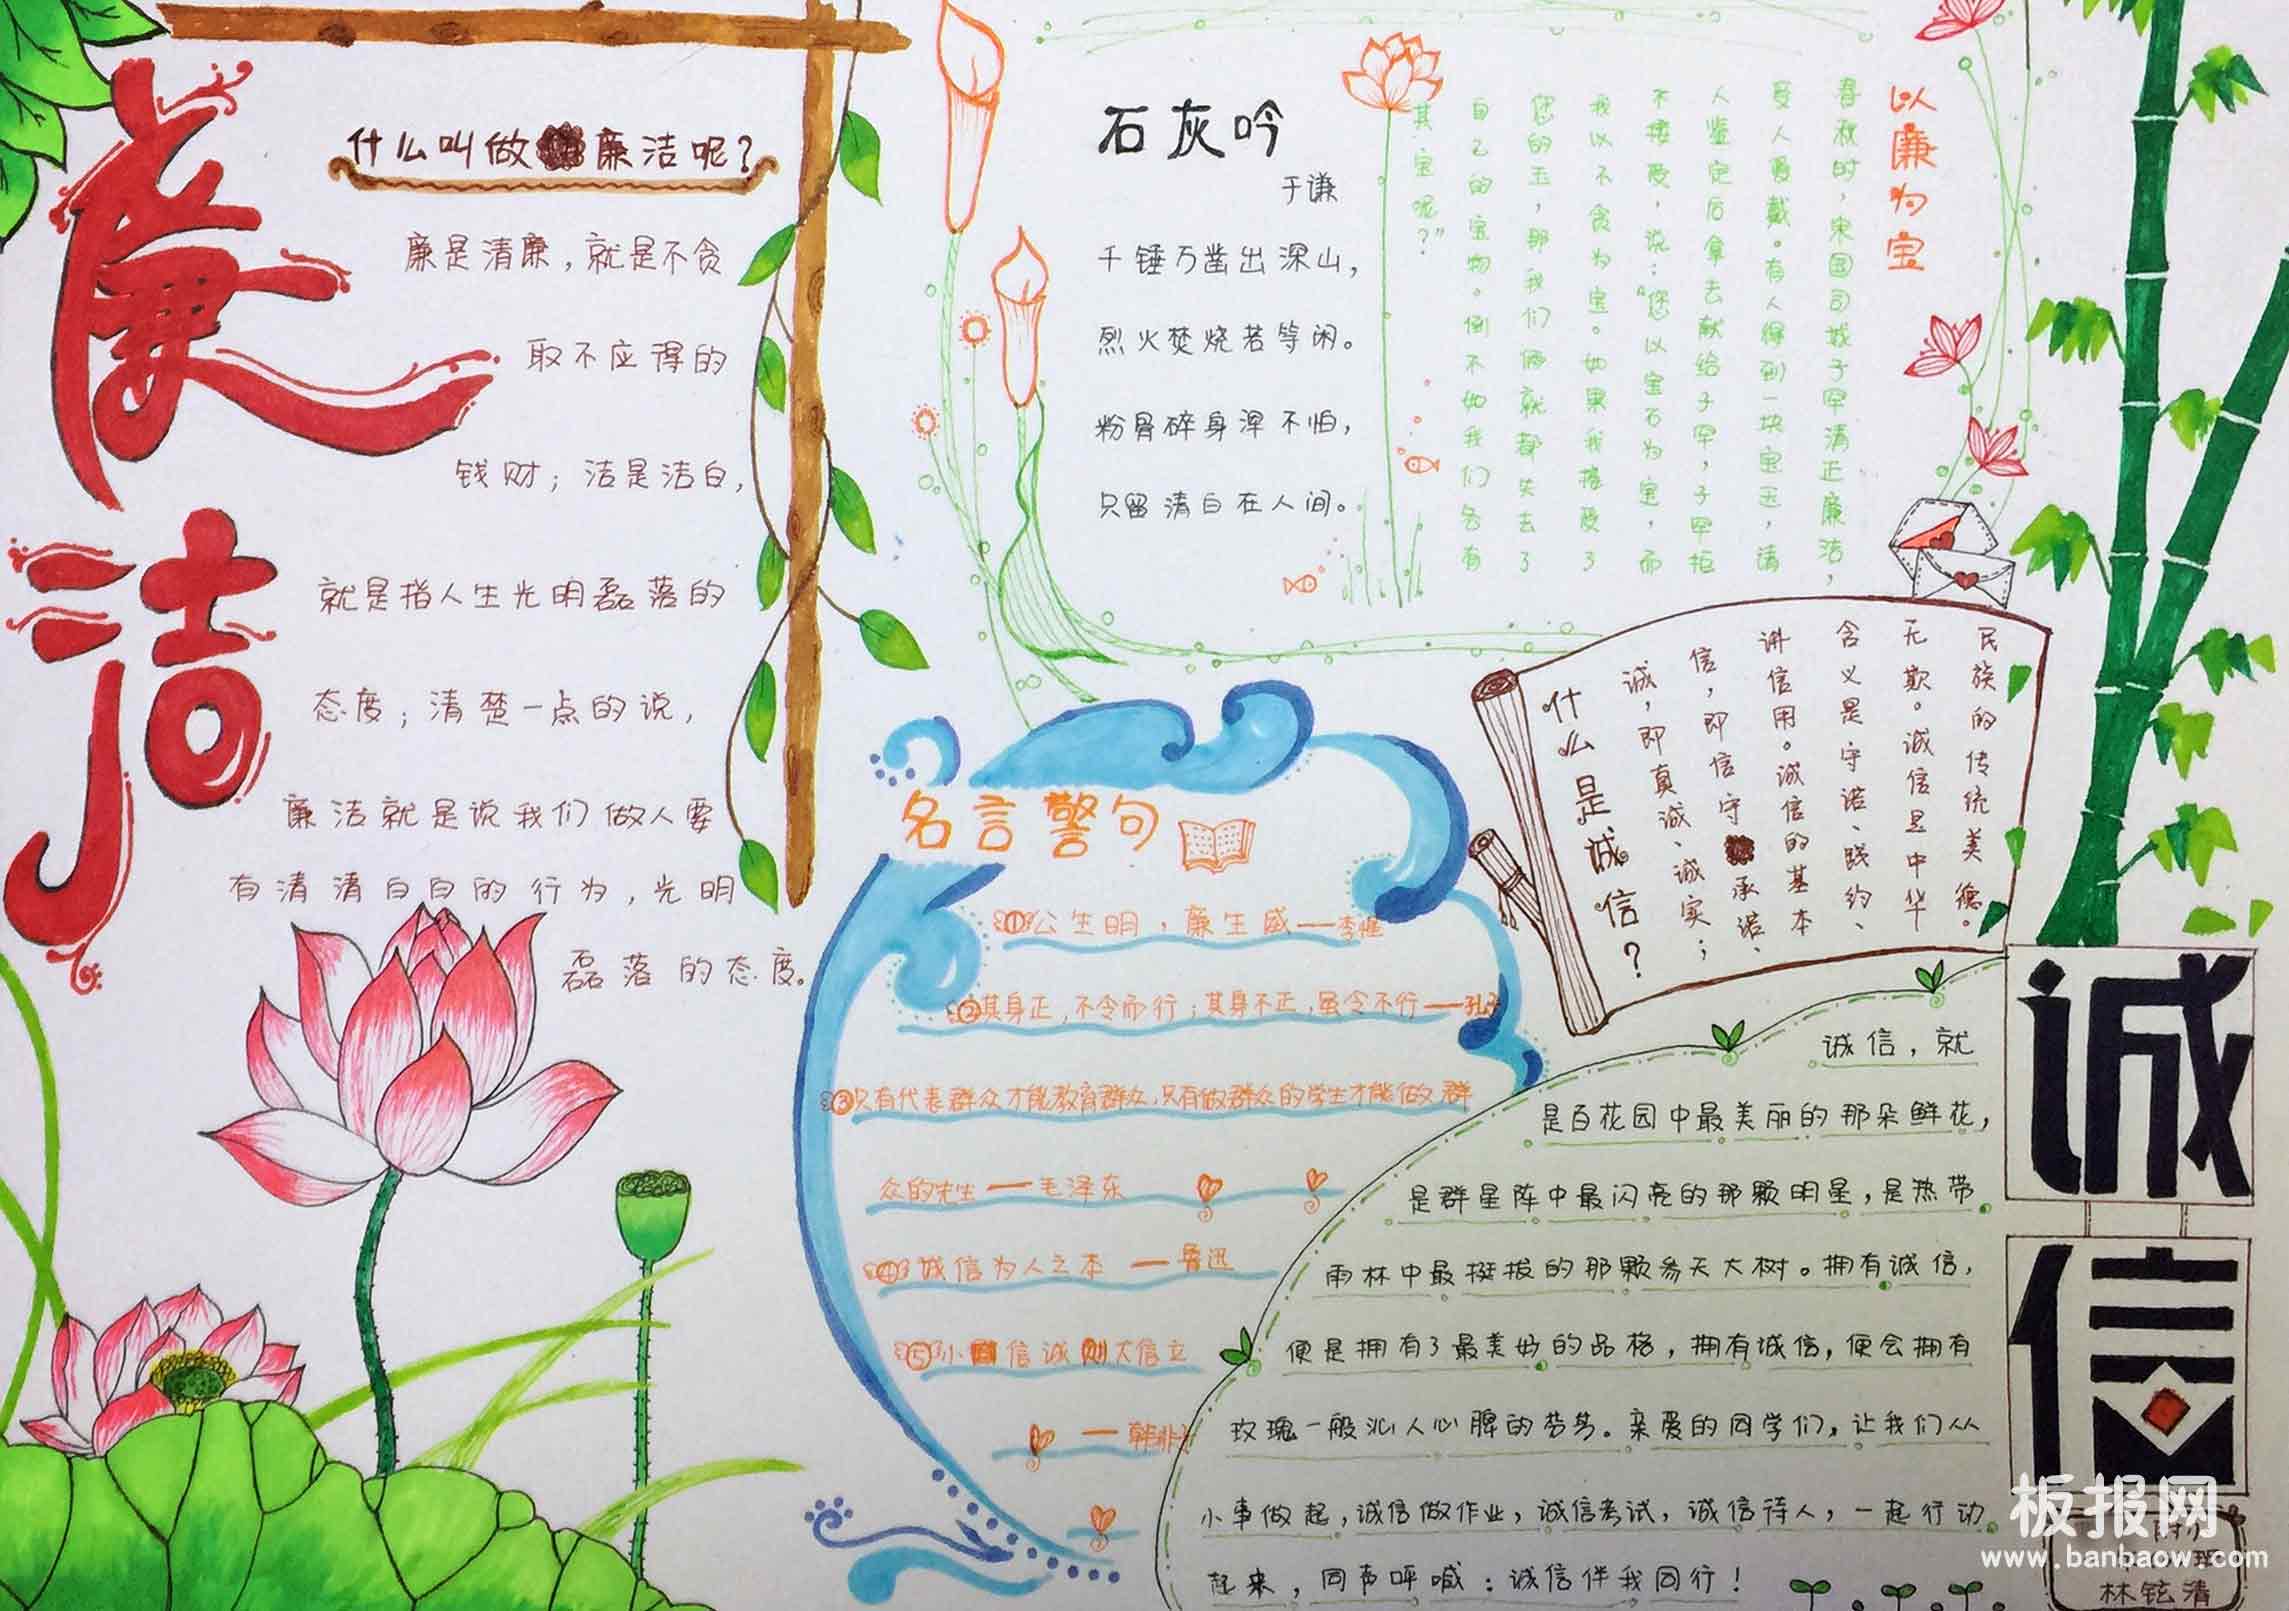 廉洁
什么叫做廉洁呢？
廉是清廉，就是不贪
取不应得的
钱财；洁是洁白，
就是指人生光明磊落的
态度；清楚一点的说，
廉洁就是说我们做人要
有清清白白的行为，光明
磊落的态度。
石灰吟
于谦
千锤万凿出深山，
烈火焚烧若等闲。
粉骨碎身浑不怕，
只留清白在人间。
以廉为宝
春秋时，宋国司城子罕清正廉洁，
受人爱戴。有人得到一块宝玉，请
人鉴定后拿去献给子罕，子罕拒
不接受，说：“您以宝石为宝，而
我以不贪为宝。如果我接受了
您的玉，那我们俩就都失去了
自己的宝物。倒不如我们各有
其宝呢？”
名言警句
①公生明，廉生威——李
②其身正，不令而行；其身不正，虽令不行——孔子
③只有代表群众才能教育群众，只有做群众的学生才能做群
众的先生——毛泽东
④诚信为人之本——鲁迅
⑤小信诚则大信立
——韩非子
什么是诚信？
诚，即真诚、诚实；
信，即信守承诺、
讲信用。诚信的基本
含义是守诺、践约、
无欺。诚信是中华
民族的传统美德。
诚信
诚信，就
是百花园中最美丽的那朵鲜花，
是群星阵中最闪亮的那颗明星，是热带
雨林中最挺拔的那颗参天大树。拥有诚信，
便是拥有了最美好的品格，拥有诚信，便会拥有
玫瑰一般沁人心脾的芳芳。亲爱的同学们，让我们从
小事做起，诚信做作业，诚信考试，诚信待人，一起行动
起来，同声呼喊：诚信伴我同行！
板报网
www.banbaow.com
林铉清